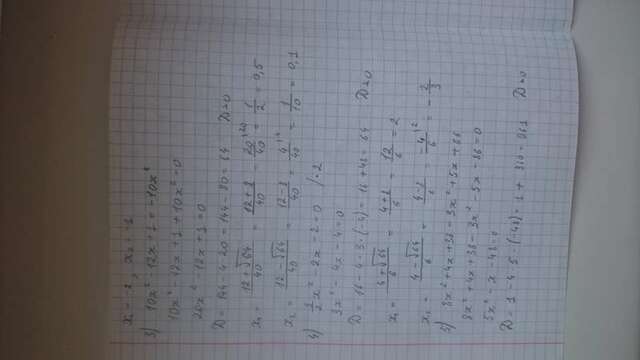 x₁ = -2, x₂ = -1
3) 10x² - 12x + 1 = -10x²
10x² - 12x + 1 + 10x² = 0
20x² - 12x + 1 = 0
D = 144 - 4·20 = 144 - 80 = 64 D>0
x₁ = (12 + √64)/40 = (12 + 8)/40 = 20/40 = 1/2 = 0,5
x₂ = (12 - √64)/40 = (12 - 8)/40 = 4/40 = 1/10 = 0,1
4) x² - 2x - 2 = 0 /·2
3x² - 4x - 4 = 0
D = 16 - 4·3·(-4) = 16 + 48 = 64 D>0
x₁ = (4 + √64)/6 = (4 + 8)/6 = 12/6 = 2
x₂ = (4 - √64)/6 = (4 - 8)/6 = -4/6 = -2/3
5) 8x² + 4x + 38 = 3x² + 5x + 86
8x² + 4x + 38 - 3x² - 5x - 86 = 0
5x² - x - 48 = 0
D = 1 - 4·5·(-48) = 1 + 960 = 961 D>0